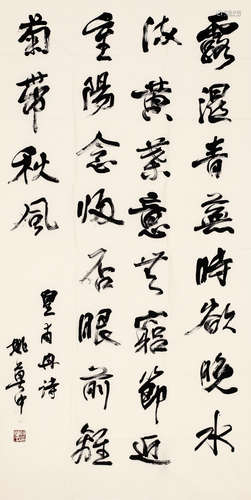 露濕青蕪時欲晚水
流黄葉意無窮節近
重陽念歸否眼前離
菊帶秋風
皇甫冉詩
姚奠中